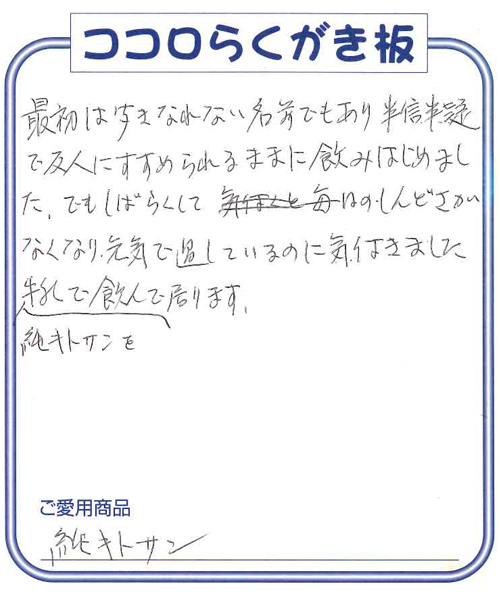 ココロらくがき板
最初は聞きなれない名前でもあり半信半疑
で友人にすすめられるままに飲みはじめまし
た、でもしばらくして 気付くと 毎日のしんどさが
なくなり、元気で過しているのに気付きました
牛乳で飲んで居ります、
純キトサンを
ご愛用商品
純キトサン